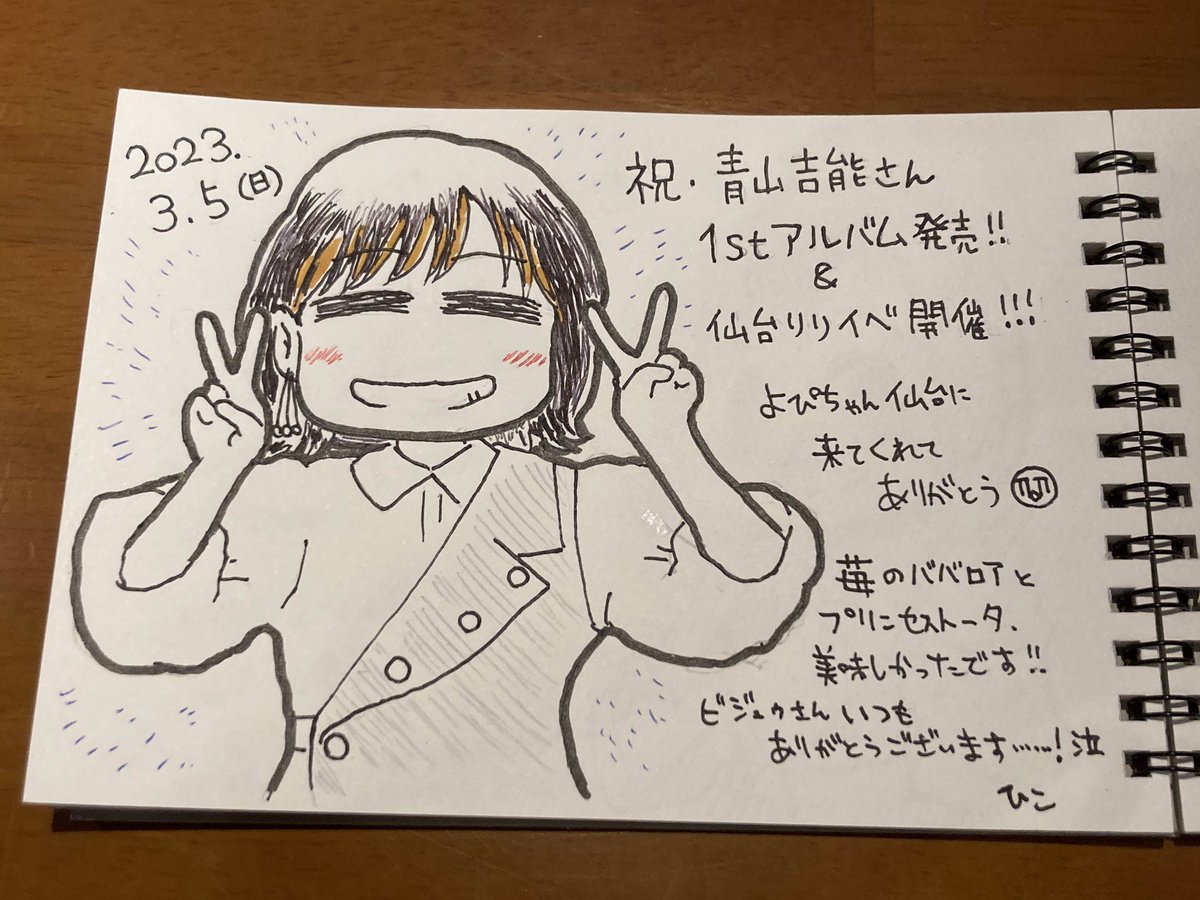 2023.
3.5(日)
祝・青山吉能さん
1stアルバム発売!!
&
仙台リリイベ開催!!!
よぴちゃん仙台に
来てくれて
ありがとう
苺のババロアと
プリンセストータ、
美味しかったです!!
ビジュウさんいつも
ありがとうございます……!泣
ひこ